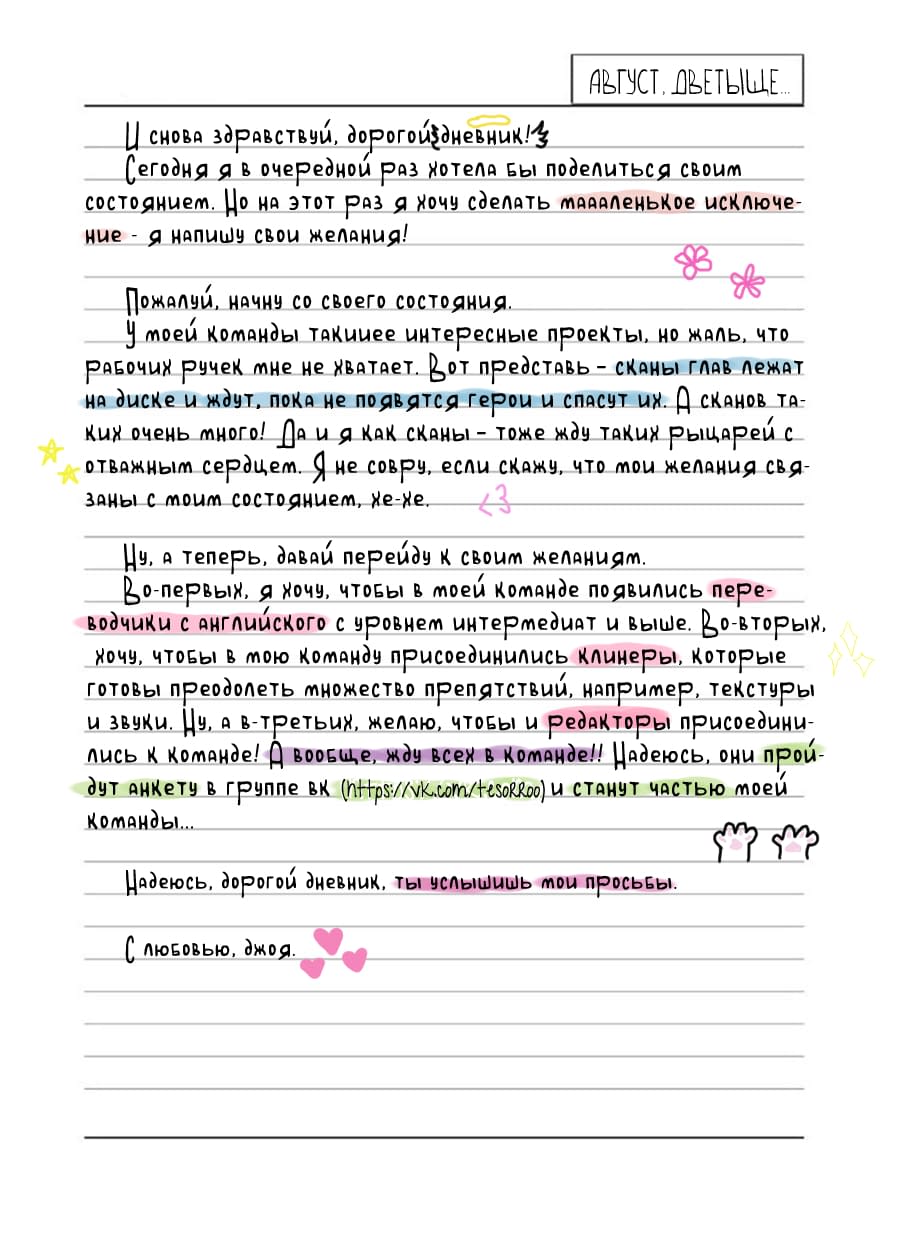 АВГУСТ, ДВЕТЫЩЕ...
И снова здравствуй, дорогой дневник!
Сегодня я в очередной раз хотела бы поделиться своим
состоянием. Но на этот раз я хочу сделать маааленькое исключе-
ние - я напишу свои желания!
Пожалуй, начну со своего состояния.
У моей команды такииее интересные проекты, но жаль, что
рабочих ручек мне не хватает. Вот представь – сканы глав лежат
на диске и ждут, пока не появятся герои и спасут их. А сканов та-
ких очень много! Да и я как сканы – тоже жду таких рыцарей с
отважным сердцем. Я не совру, если скажу, что мои желания свя-
заны с моим состоянием, хе-хе.
<3
Ну, а теперь, давай перейду к своим желаниям.
Во-первых, я хочу, чтобы в моей команде появились пере-
водчики с английского с уровнем интермедиат и выше. Во-вторых,
хочу, чтобы в мою команду присоединились клинеры, которые
готовы преодолеть множество препятствий, например, текстуры
и звуки. Ну, а в-третьих, желаю, чтобы и редакторы присоедини-
лись к команде! А вообще, жду всех в команде!! Надеюсь, они прой-
дут анкету в группе вк (https://vk.com/tesoRRoo) и станут частью моей
команды...
Надеюсь, дорогой дневник, ты услышишь мои просьбы.
С любовью, джоя.